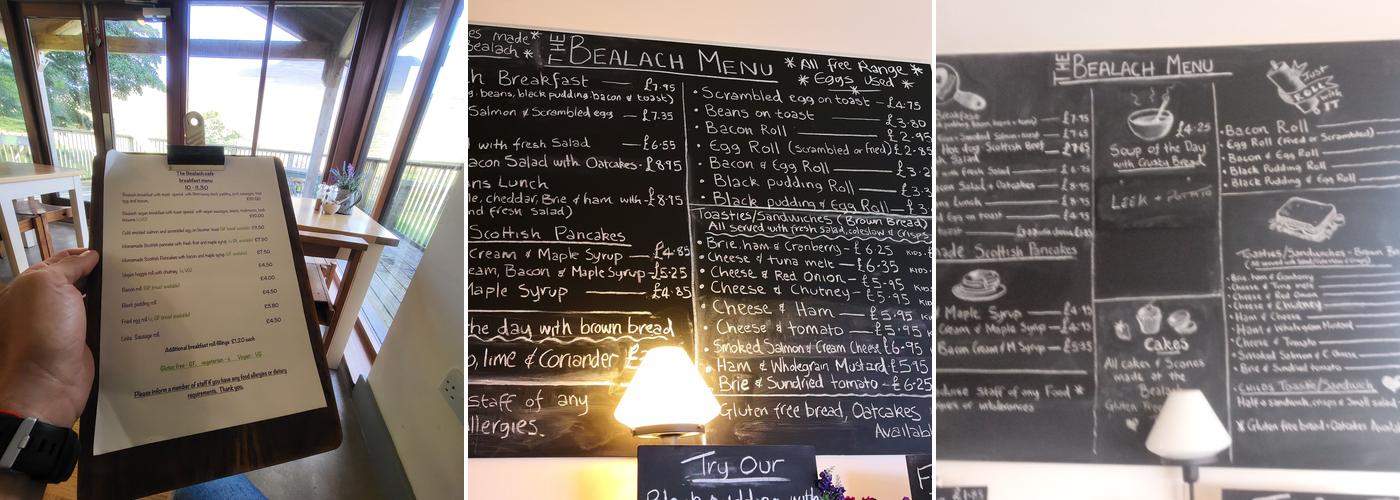 The Bealach cafe
breakfast menu
10 - 11.30
£10.00
£10.00
Cold smoked salmon and scrambled egg on brown toast £9.50
Homemade Scottish pancakes with fresh fruit and maple syrup £7.50
Homemade Scottish Pancakes with bacon and maple syrup £7.50
Vegan haggis roll with chutney £4.50
Bacon roll £4.00
Black pudding roll £4.50
Fried egg roll £3.80
Links Sausage roll £4.50
Additional breakfast roll fillings £1.20 each
Gluten free - GF, vegetarian - v, Vegan - VG
Please inform a member of staff if you have any food allergies or dietary
requirements. Thank you.
es made *
Bealach *
THE BEALACH MENU
* All free Range *
* Eggs used *
h Breakfast — £7.95
g, beans, black pudding, bacon & toast)
Salmon & Scrambled egg — £7.35
with fresh Salad — £6.55
acon Salad with Oatcakes - £8.95
ns Lunch
le, cheddar, Brie & ham with - £8.15
nd fresh salad)
Scottish Pancakes
Cream & Maple Syrup — £4.85
eam, Bacon & Maple Syrup - £5.25
Maple Syrup — £4.85
the day with brown bread
o, lime & Coriander
staff of any
llergies.
• Scrambled egg on toast - £4.75
• Beans on toast — £3.80
• Bacon Roll — £2.95
• Egg Roll (scrambled or fried) £2.85
• Bacon & Egg Roll — £3.2
• Black pudding Roll — £3.3
• Black Pudding & Egg Roll — £3.
Toasties/Sandwiches (Brown Bread)
All served with fresh salad, coleslaw & crisps
• Brie, ham & Cranberry - £6.25 KIDS
• Cheese & tuna melt — £6.35
• Cheese & Red Onion - £5.95 KIDS
• Cheese & Chutney - £5.95 KIDS
• Cheese & Ham — £5.95 KIDS
• Cheese & tomato — £5.95 K
• Smoked Salmon & Cream Cheese £6.95
• Ham & Wholegrain Mustard - £5.95
• Brie & Sundried tomato - £6.25
Gluten free bread, Oatcakes
Availabl
Try Our
Black pudding with
THE BEALACH MENU
Just
ROLL
with
IT
Breakfast
Salad
Lunch
ade Scottish Pancakes
Maple Syrup — £4.95
Cream & Maple Syrup
Bacon Cream & M Syrup — £5.35
£4.25
Soup of the Day
with Crusty Bread
Leek &
Cakes
All cakes & Scones
made at the
Bealach
Gluten
• Bacon Roll
• Egg Roll (Fried or Scrambled)
• Bacon & Egg Roll
• Black Pudding Roll
• Black Pudding & Egg Roll
Toasties/Sandwiches - Brown
• Brie, ham & Cranberry
• Cheese & Tuna melt
• Cheese & Red Onion
• Cheese & Chutney
• Ham & Cheese
• Ham & Wholegrain Mustard
• Cheese & Tomato
• Smoked Salmon & C Cheese
• Brie & Sundried tomato
CHILDS Toastie/Sandwich
Half a sandwich, crisps & Small salad
* Gluten free bread & Oatcakes Availabl